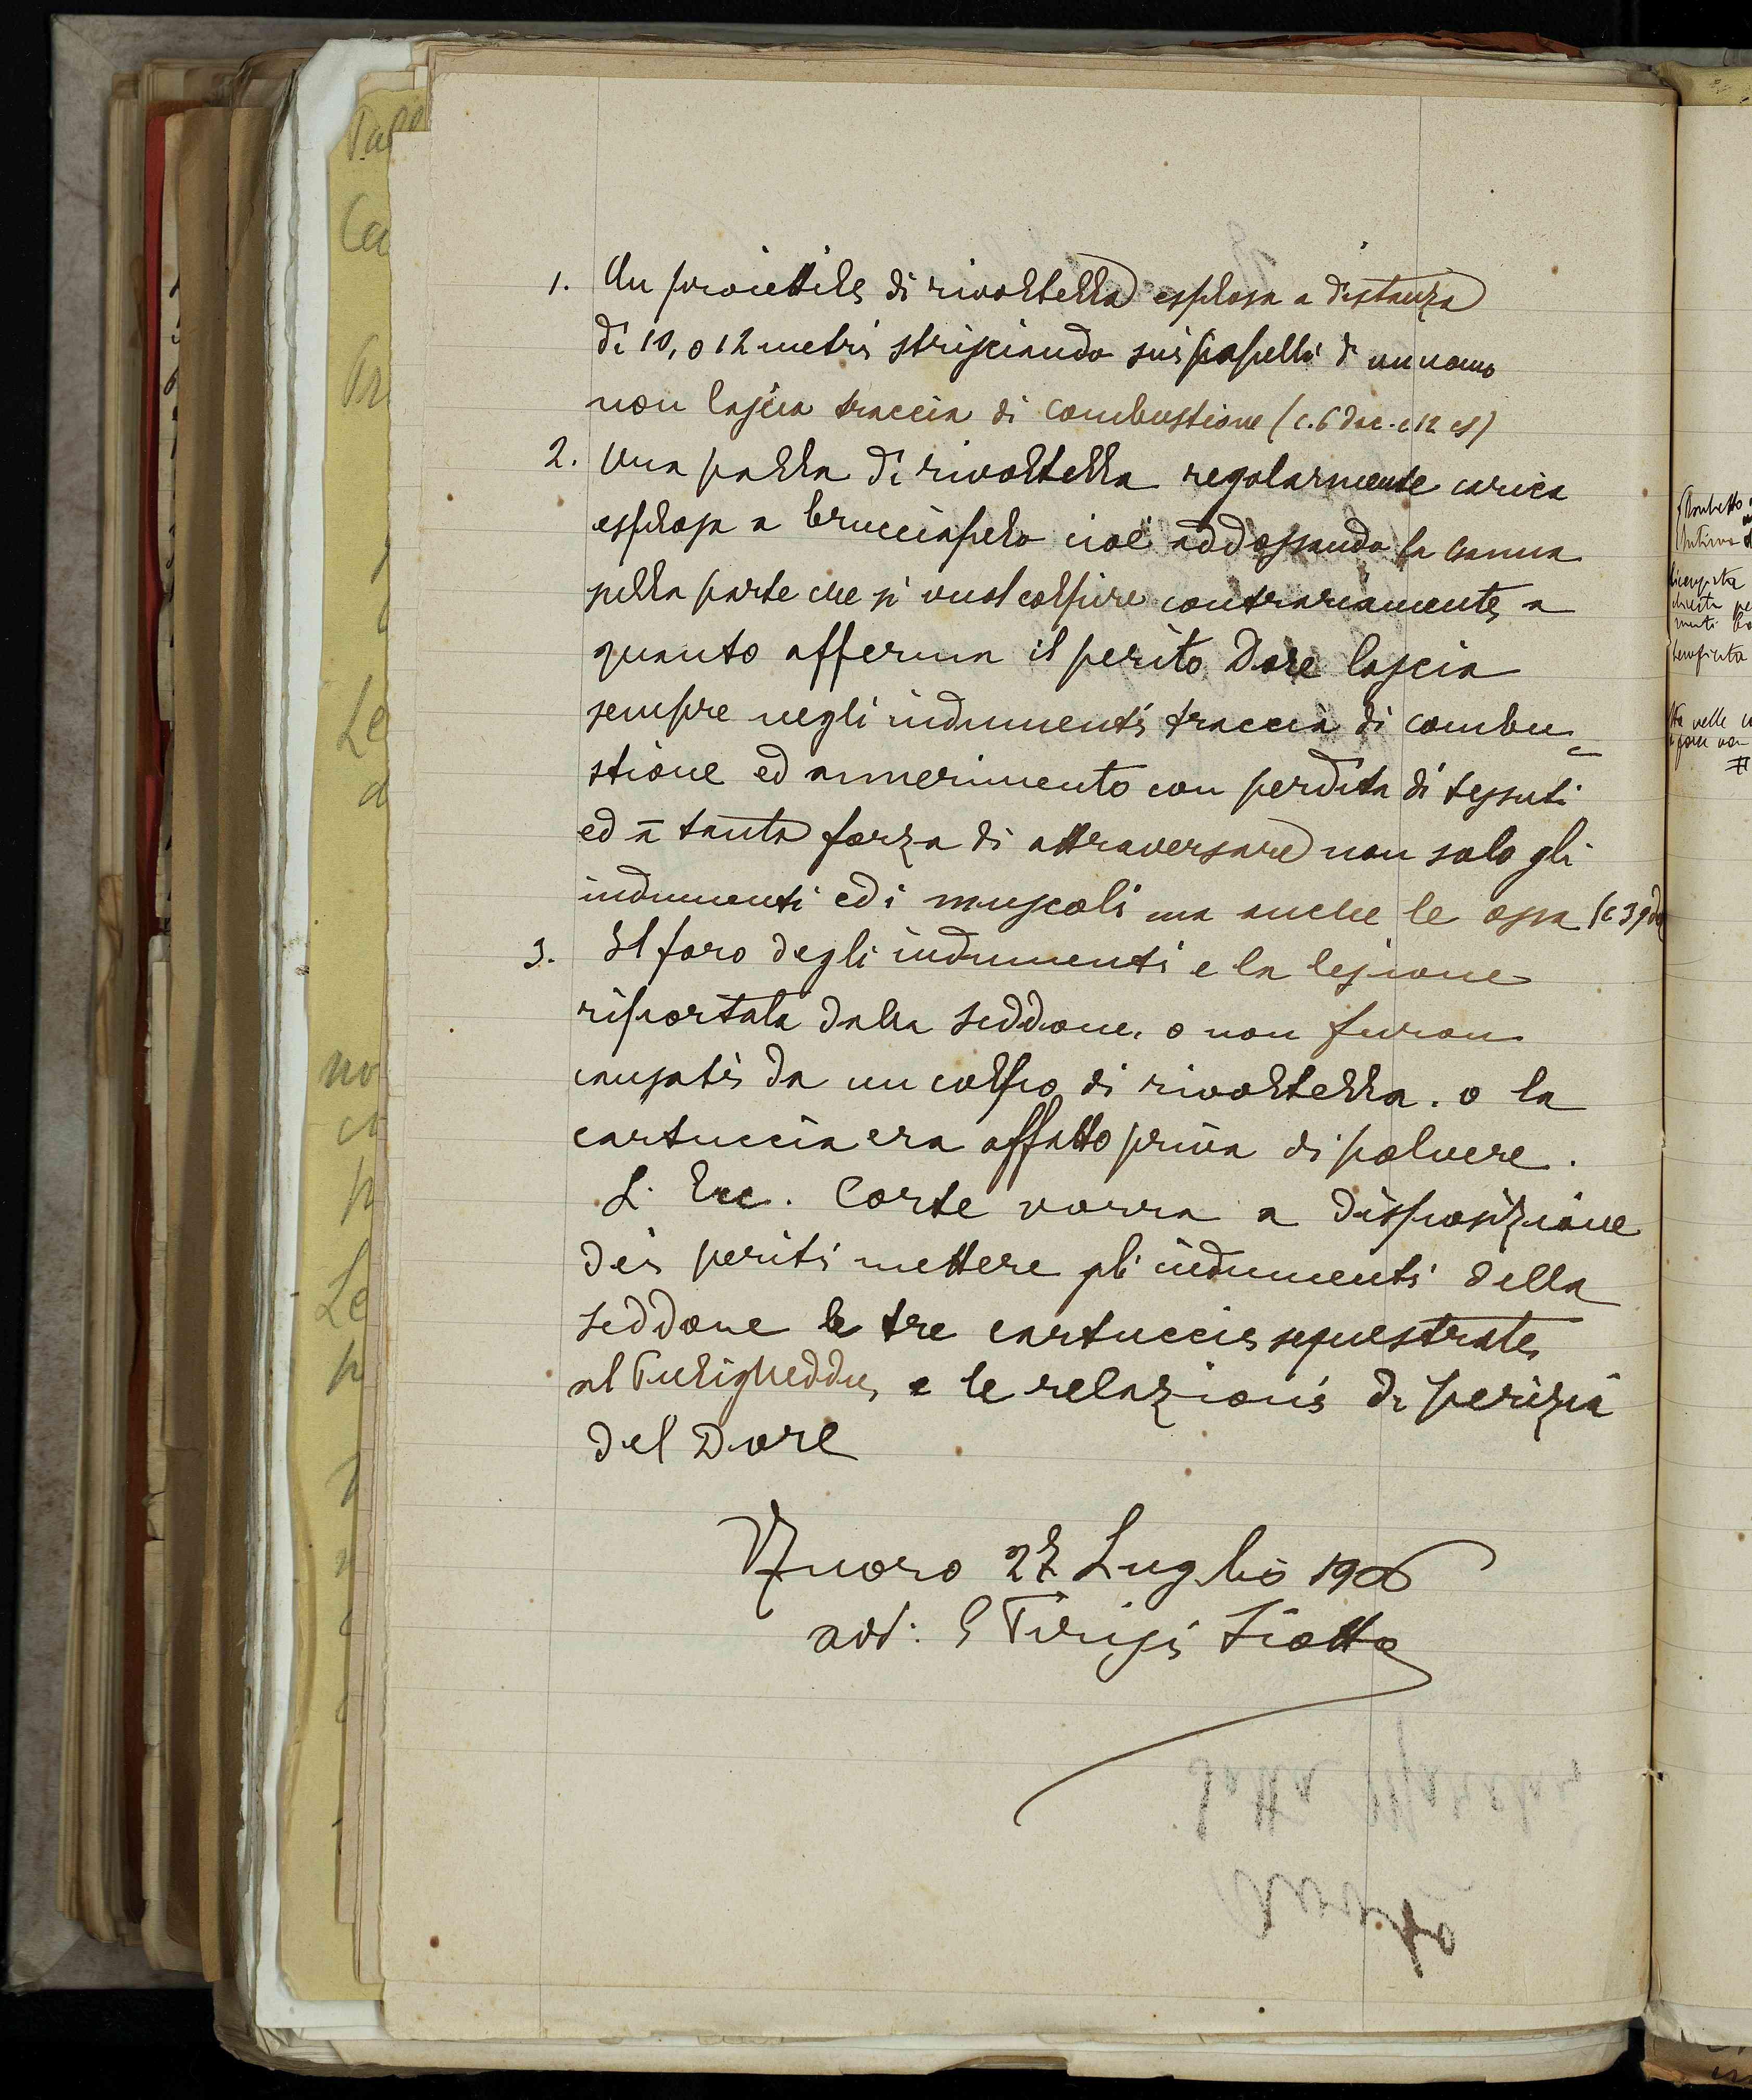 1. Un proiettile di rivoltella esplosa a distanza
di 10, o 12 metri strisciando sui capelli di un uomo
non lascia traccia di combustione (c. 6
2. Una palla di rivoltella regolarmente carica
esplosa a bruciapelo cioè addossando la canna
sulla parte che si vuol colpire contrariamente a
quanto afferma il perito Dore lascia
sempre negli indumenti traccia di combu=
stione ed annerimento con perdita di tessuti
ed à tanta forza di attraversare non solo gli
indumenti ed i muscoli ma anche le ossa
3. Il foro degli indumenti e la lesione
riportata dalla Seddone, o non furon
causati da un colpo di rivoltella. o la
cartuccia era affatto priva di polvere.
L. Ecc. Corte vorra a disposizione
dei periti mettere gli indumenti della
Seddone le tre cartuccie sequestrate
al e le relazioni di perizia
del Dore
Nuoro 27 Luglio 1906
avv: